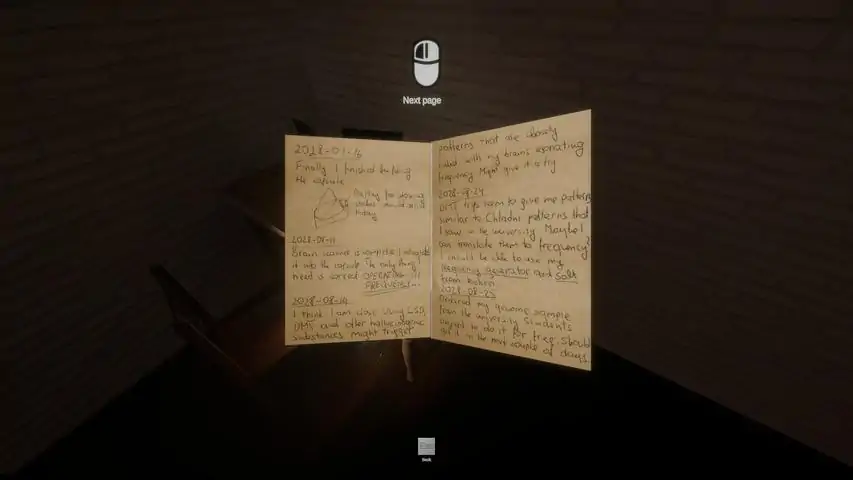 Next page
Finally I finished building
the capsule
Waiting for
today
Brain scanner is complete I integrated
it into the capsule The only thing I
need is correct OPERATING
FREQUENCY...
2028-08-14
I think I am close Using LSD,
DMT and other hallucinogenic
substances might trigger
patterns that are closely
linked with my brains resonating
frequency Might give it a try
2028-08-24
DMT trips seem to give me patterns
similar to Chladni patterns that
I saw in the university Maybe I
can translate them to frequency?
I should be able to use my
frequency generator and Salt
from kitchen
2028-08-25
Ordered my genome sample
from the university Students
agreed to do it for free. Should
get it in the next couple of days
Book